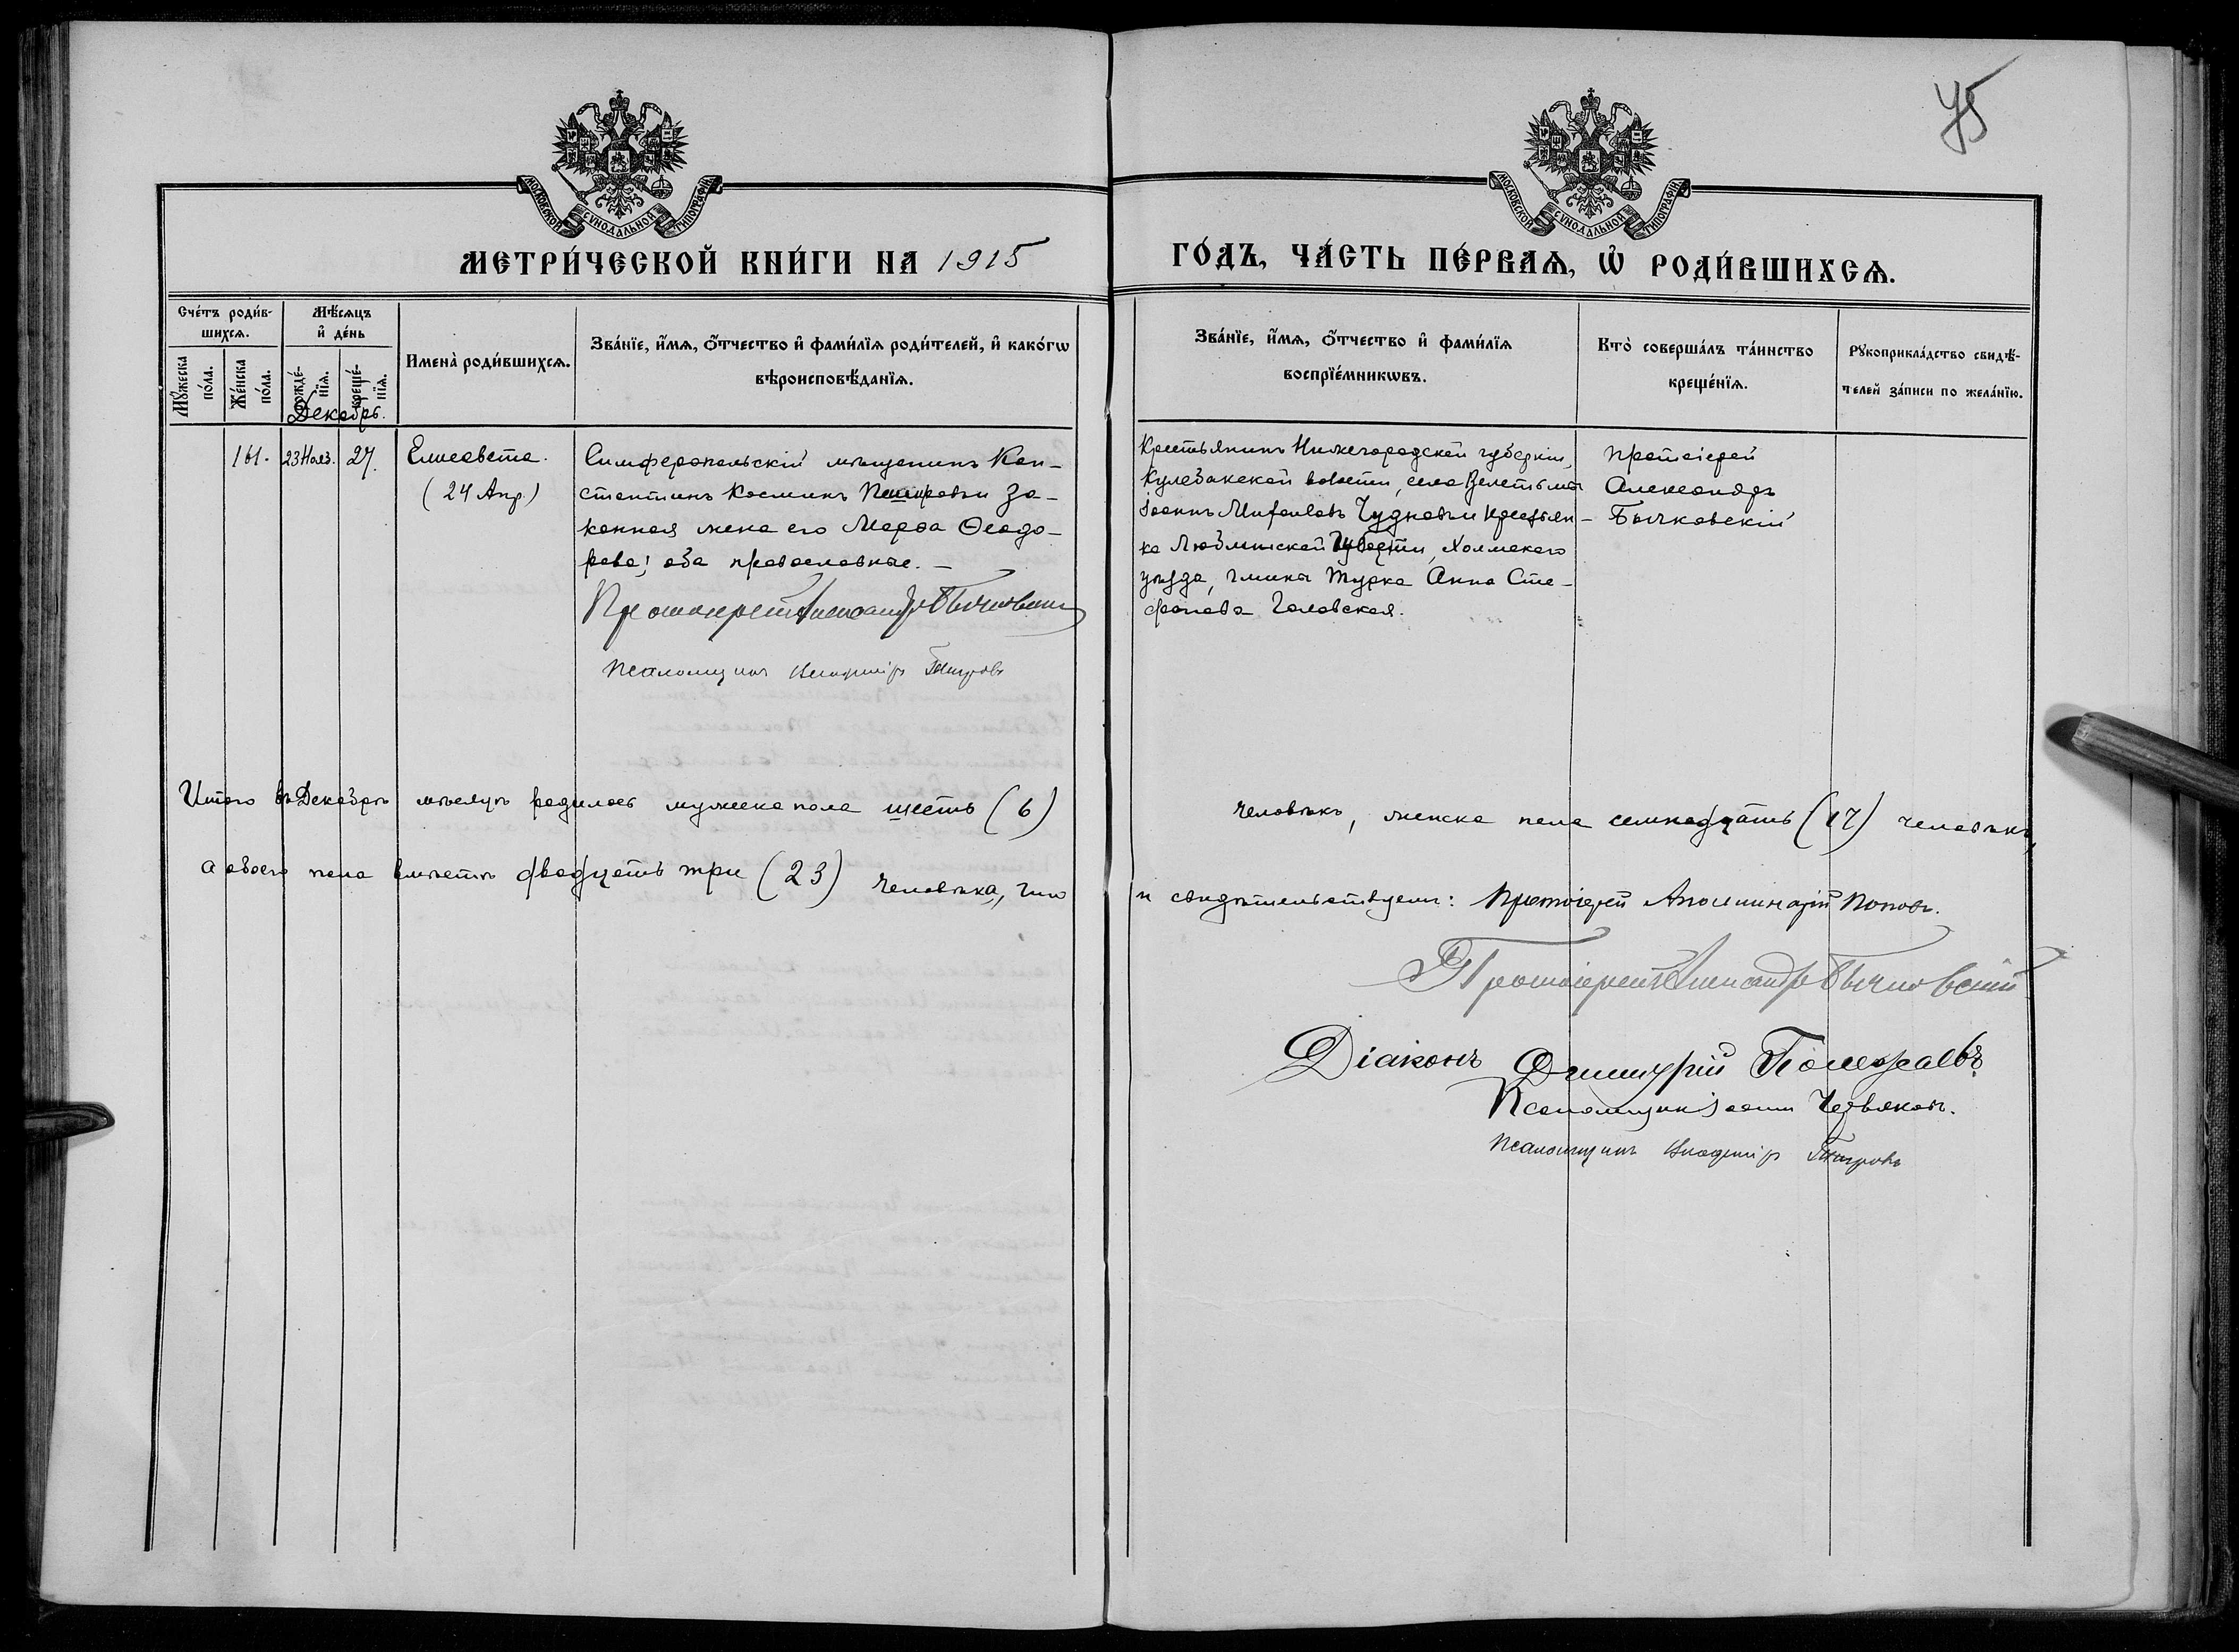 75
МОСКОВСКОЙ СѴНОДАЛЬНОЙ ТИПОГРАФІИ
МОСКОВСКОЙ СѴНОДАЛЬНОЙ ТИПОГРАФІИ
МЕТРИ́ЧЕСКОЙ КНИ́ГИ НА 1915
ГО́ДЪ, ЧА́СТЬ ПЕ́РВАѦ, Ѡ҆ РОДИ́ВШИХСѦ.
Сче́тъ роди́в-
шихсѧ.
Мꙋ́жеска по́ла.
Же́нска по́ла.
Мѣ́сѧцъ и҆ де́нь
рожде́-нїѧ.
креще́-нїѧ.
Имена̀ роди́вшихсѧ.
Зва́нїе, и҆́мѧ, ѻ҆́тчество и҆ фами́лїѧ роди́телей, и҆ како́гѡ
вѣроисповѣ́данїѧ.
Зва́нїе, и҆́мѧ, ѻ҆́тчество и҆ фами́лїѧ
воспрїе́мникѡвъ.
Кто̀ соверша́лъ та́инство
креще́нїѧ.
Рꙋкоприкла́дство свидѣ́-
телей за́писи по жела́нїю.
Декабрь.
161. 23 Нояб. 27. Елисавета.
(24 Апр.)
Симферопольскій мѣщанинъ Кон-
стантинъ Косминъ и за-
конная жена его Марѳа Ѳеодо-
рова; оба православные. –
Протоіерей Александръ Бычковскій
Псаломщикъ Владиміръ
Крестьянинъ Нижегородской губерніи,
Кулебакской волости, села Велетьма
Іоаннъ Михаиловъ Чудновъ и крестьян-
ка Люблинской губерніи, Холмскаго
уѣзда, гмины Турка Анна Сте-
фанова Головская.
Протоіерей
Александръ
Бычковскій
Итого въ Декабрѣ мѣсяцѣ родилось мужеска пола шесть (6)
человѣкъ, женска пола семнадцать (17) человѣкъ,
а обоего пола вмѣстѣ двадцать три (23) человѣка, что
и свидѣтельствуемъ: Протоіерей Аполлинарій Поповъ.
Протоіерей Александръ Бычковскій
Діаконъ Димитрій
Псаломщикъ Іоаннъ Червяковъ.
Псаломщикъ Владиміръ